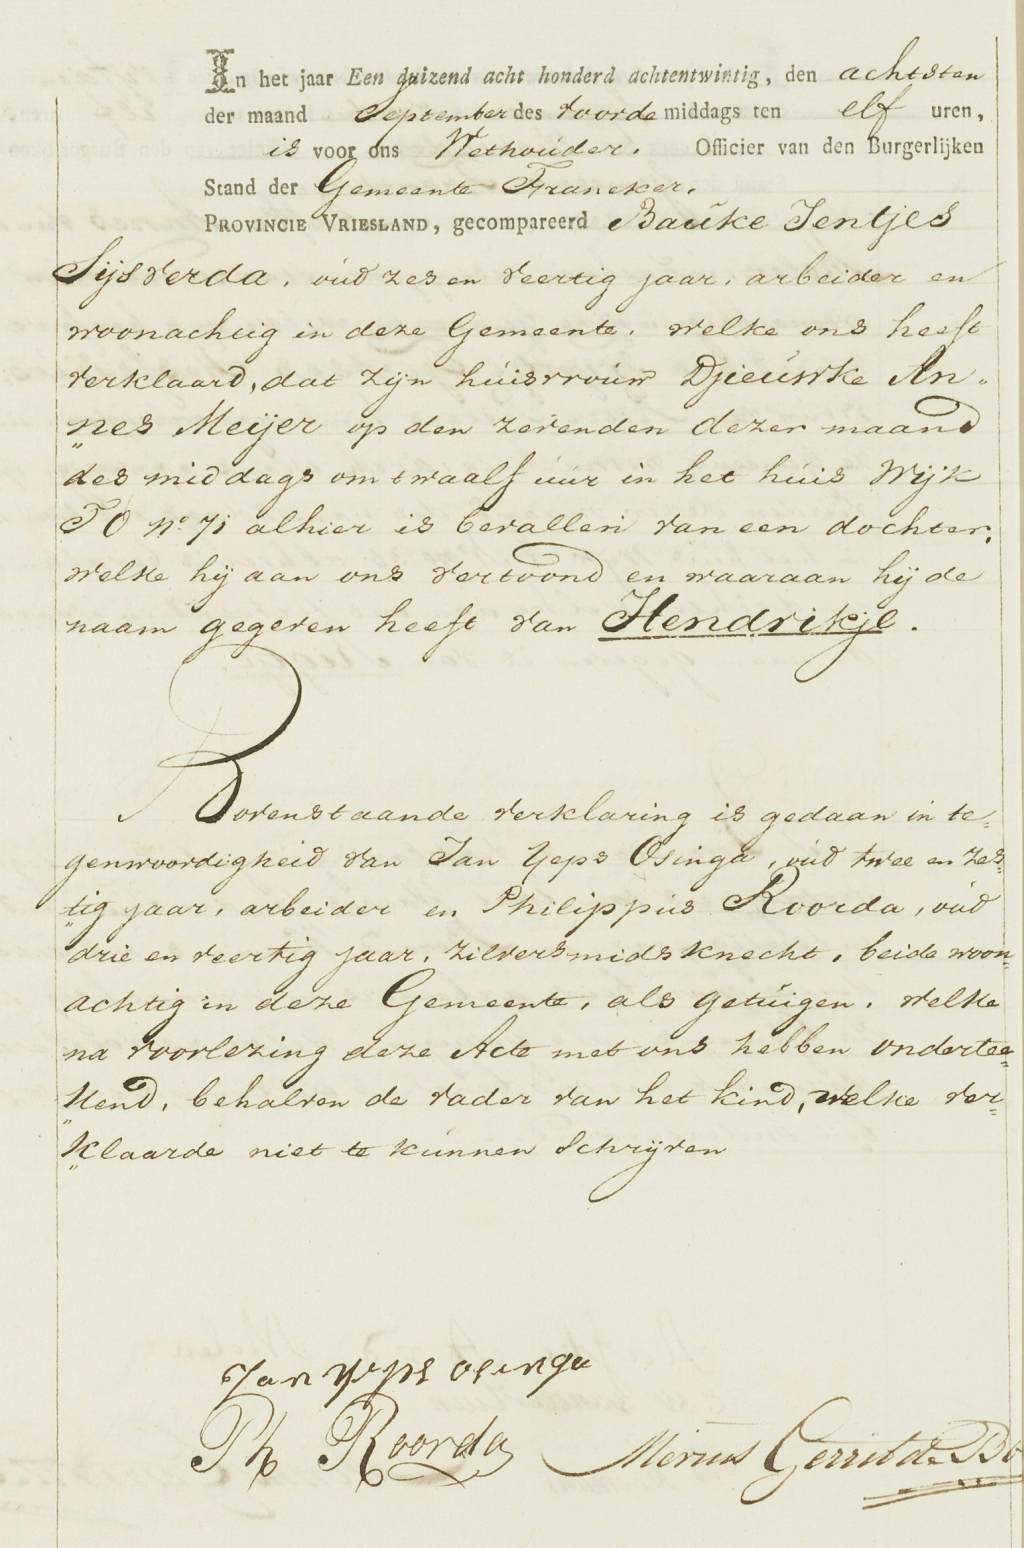 In het jaar Een duizend acht honderd achtentwintig, den achtsten
der maand September des voorde middags ten elf uren,
is voor ons Wethouder. Officier van den Burgerlijken
Stand der Gemeente Franeker.
PROVINCIE VRIESLAND, gecompareerd Bauke Jentjes
Sijsverda, oud zes en veertig jaar, arbeider en
woonachtig in deze Gemeente. welke ons heeft
verklaard, dat zijn huisvrouw Djieuwke An„
„nes Meijer op den zevenden dezer maand
des middags om twaalf uur in het huis Wijk
TO No 71 alhier is bevallen van een dochter,
welke hij aan ons vertoond en waaraan hij de
naam gegeven heeft van Hendrikje.
Bovenstaande verklaring is gedaan in te=
genwoordigheid van Jan Yeps Osinga, oud twee en zes=
„tig jaar, arbeider en Philippus Roorda, oud
drie en veertig jaar, zilversmidsknecht, beide woon=
achtig in deze Gemeente, als getuigen. welke
na voorlezing deze Acte met ons hebben ondertee=
kend, behalven de vader van het kind, welke ver=
„klaarde niet te kunnen schrijven
Jan Yeps Osinga
Ph Roorda Gerrit de